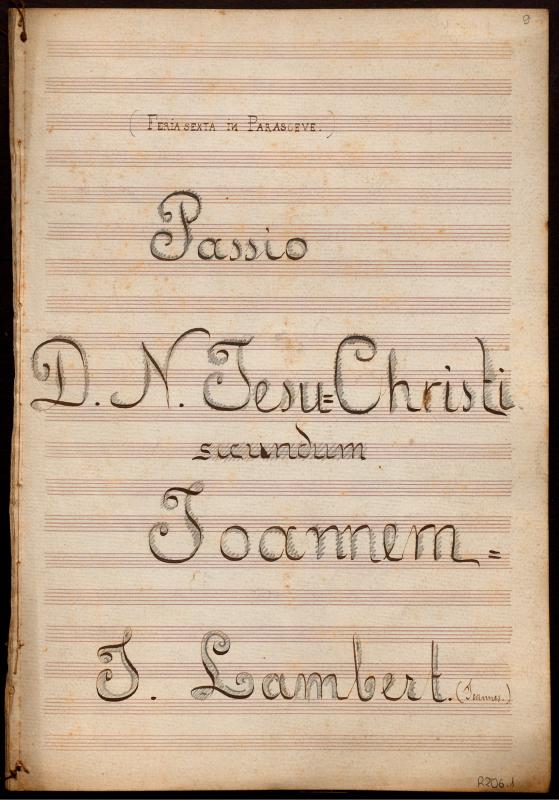 9
(FERIA SEXTA IN PARASCEVE.)
Passio
D. N. Jesu=Christi
secundum
Joannem=
J. Lambert. (Joannes.)
R206.1